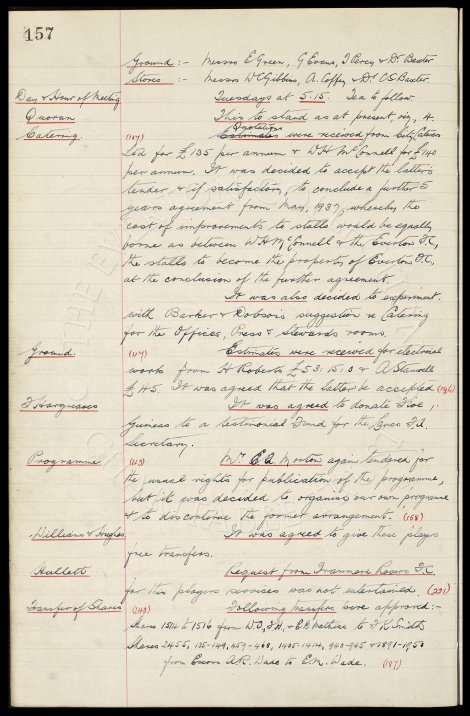 157
Ground :- Messrs E. Green, G. Evans, J. Percy & Dr. Baxter
Stores :- Messrs W.C. Gibbins, A. Coffey & Dr. C.S. Baxter.
Day & Hour of Meeting Tuesdays at 5.15. Tea to follow
Quorum This to stand as at present, viz, 4.
Quotations
Catering. (147) Estimates were received from City Caterers
Ltd for £135 per annum & W.H. McConnell for £140
per annum. It was decided to accept the latter's
tender & if satisfactory, to conclude a further 5
years agreement from May, 1937, whereby the
cost of improvements to stalls would be equally
borne as between W.H. McConnell & the Everton F.C,
the stalls to become the property of Everton F.C.
at the conclusion of the further agreement.
It was also decided to experiment
with Barker & Dobson's suggestion re Catering
for the Offices, Press & Stewards rooms.
Ground. (147) Estimates were received for electrical
work from H Roberts £53.15.0 & A
£45. It was agreed that the latter be accepted (196)
J Hargreaves It was agreed to donate Five
Guineas to a testimonial Fund for the Lancs F.A.
Secretary.
Programme (143) Mr. E.A. Morton again tendered for
the usual rights for publication of the programme,
but it was decided to organise our own programme
& to discontinue the former arrangement. (158)
Williams & Hughes It was agreed to give these players
free transfers.
Hullett Request from Tranmere Rovers F.C.
for this players services was not entertained (221)
Transfer of Shares (143) Following transfers were approved:-
Shares 1514 to 1516 from W.J., F.H., & E.B. Mathias to F.H. Smith
Shares 2455, 135-149, 459-468, 1405-1414, 940-945 & 1891-1950
from Exors A.R. Wade to E.M. Wade. (187)